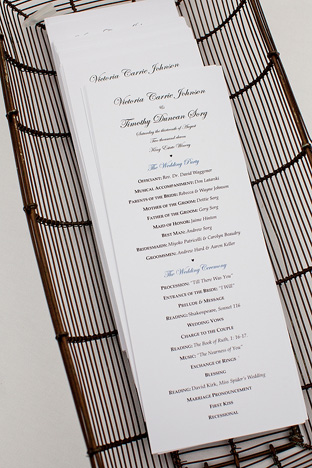 Victoria Carrie Johnson
Victoria Carrie Johnson
&
Timothy Duncan Sorg
Saturday the thirteenth of August
Two thousand eleven
King Estate Winery
The Wedding Party
Officiant: Rev. Dr. David Waggoner
Musical Accompaniment: Don Latarski
Parents of the Bride: Rebecca & Wayne Johnson
Mother of the Groom: Dottie Sorg
Father of the Groom: Gary Sorg
Maid of Honor: Jaime Hinton
Best Man: Andrew Sorg
Bridesmaids: Miyoko Patricelli & Carolyn Beaudry
Groomsmen: Andrew Hurd & Aaron Keller
The Wedding Ceremony
Procession: "Till There Was You"
Entrance of the Bride: "I Will"
Prelude & Message
Reading: Shakespeare, Sonnet 116
Wedding Vows
Charge to the Couple
Reading: The Book of Ruth, 1: 16-17
Music: "The Nearness of You"
Exchange of Rings
Blessing
Reading: David Kirk, Miss Spider's Wedding
Marriage Pronouncement
First Kiss
Recessional